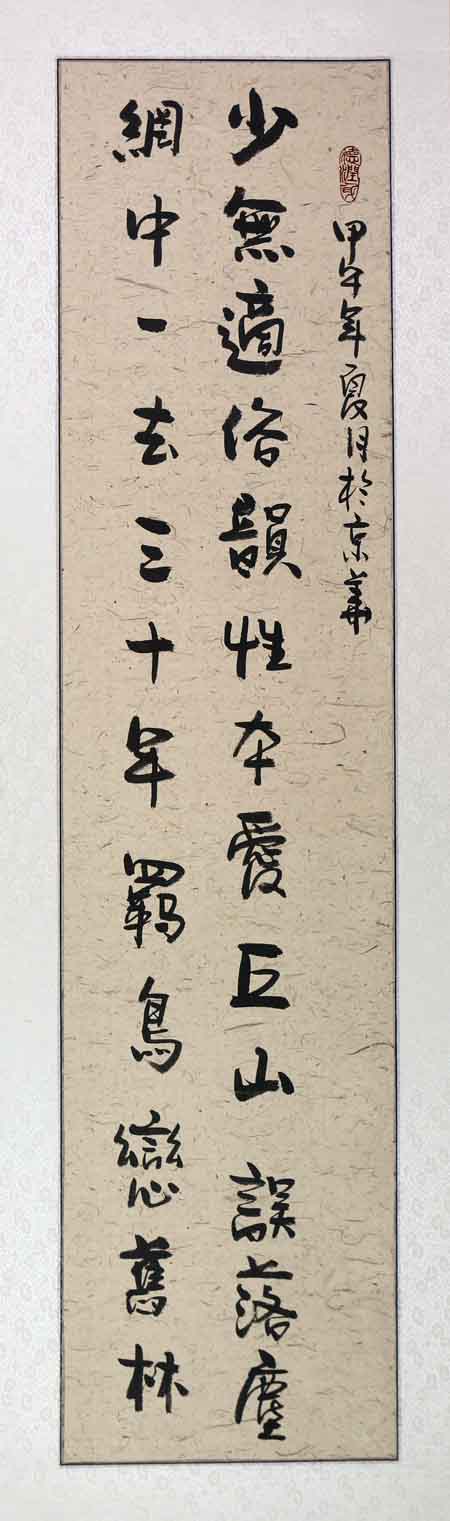 德潤身
甲午年夏月於京華
少無適俗韻性本愛丘山誤落塵
網中一去三十年羈鳥戀舊林